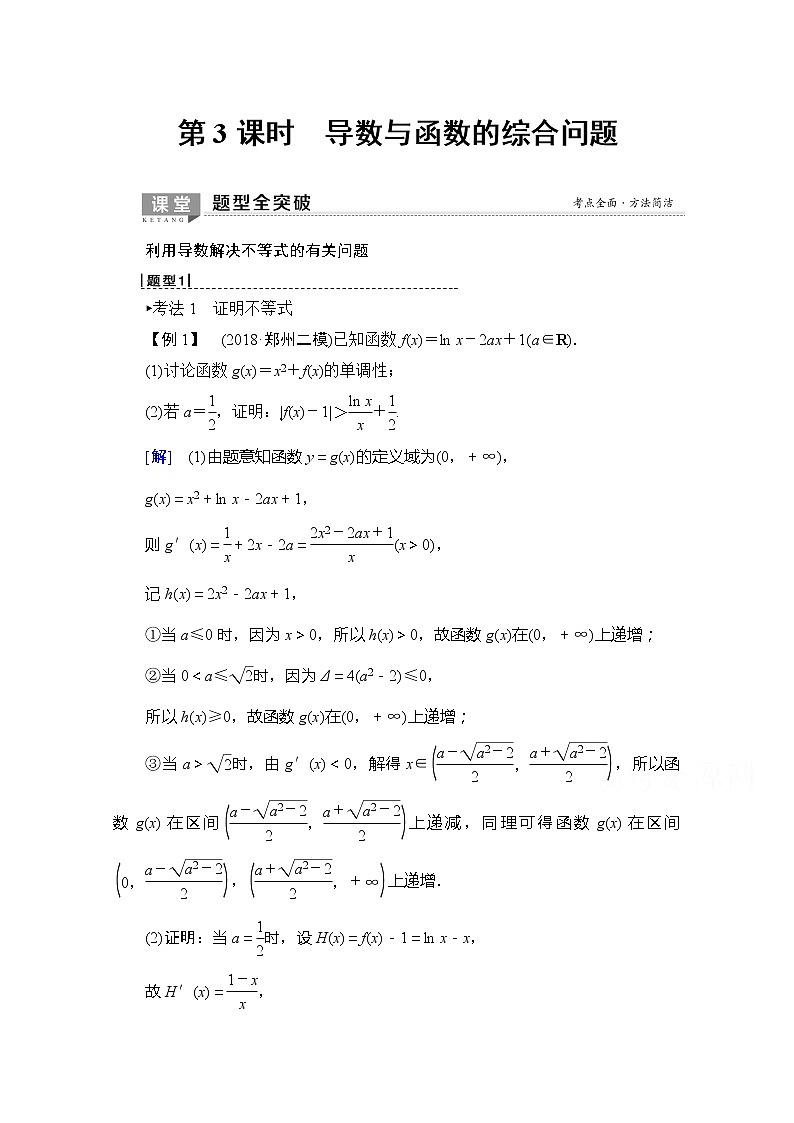 第3课时　导数与函数的综合问题
课堂 题型全突破 考点全面·方法简洁
KETANG
利用导数解决不等式的有关问题
题型1
▸考法1　证明不等式
【例1】　(2018·郑州二模)已知函数f(x)＝ln x－2ax＋1(a∈R).
(1)讨论函数g(x)＝x²＋f(x)的单调性；
(2)若a＝1/2，证明：|f(x)－1|＞ln x/x＋1/2.
[解]　(1)由题意知函数y＝g(x)的定义域为(0，＋∞)，
g(x)＝x²＋ln x－2ax＋1，
则g′(x)＝1/x＋2x－2a＝(2x²－2ax＋1)/x(x＞0)，
记h(x)＝2x²－2ax＋1，
①当a≤0时，因为x＞0，所以h(x)＞0，故函数g(x)在(0，＋∞)上递增；
②当0＜a≤√2时，因为Δ＝4(a²－2)≤0，
所以h(x)≥0，故函数g(x)在(0，＋∞)上递增；
③当a＞√2时，由g′(x)＜0，解得x∈((a－√(a²－2))/2，(a＋√(a²－2))/2)，所以函
数g(x)在区间((a－√(a²－2))/2，(a＋√(a²－2))/2)上递减，同理可得函数g(x)在区间
(0，(a－√(a²－2))/2)，((a＋√(a²－2))/2，＋∞)上递增．
(2)证明：当a＝1/2时，设H(x)＝f(x)－1＝ln x－x，
故H′(x)＝(1－x)/x，